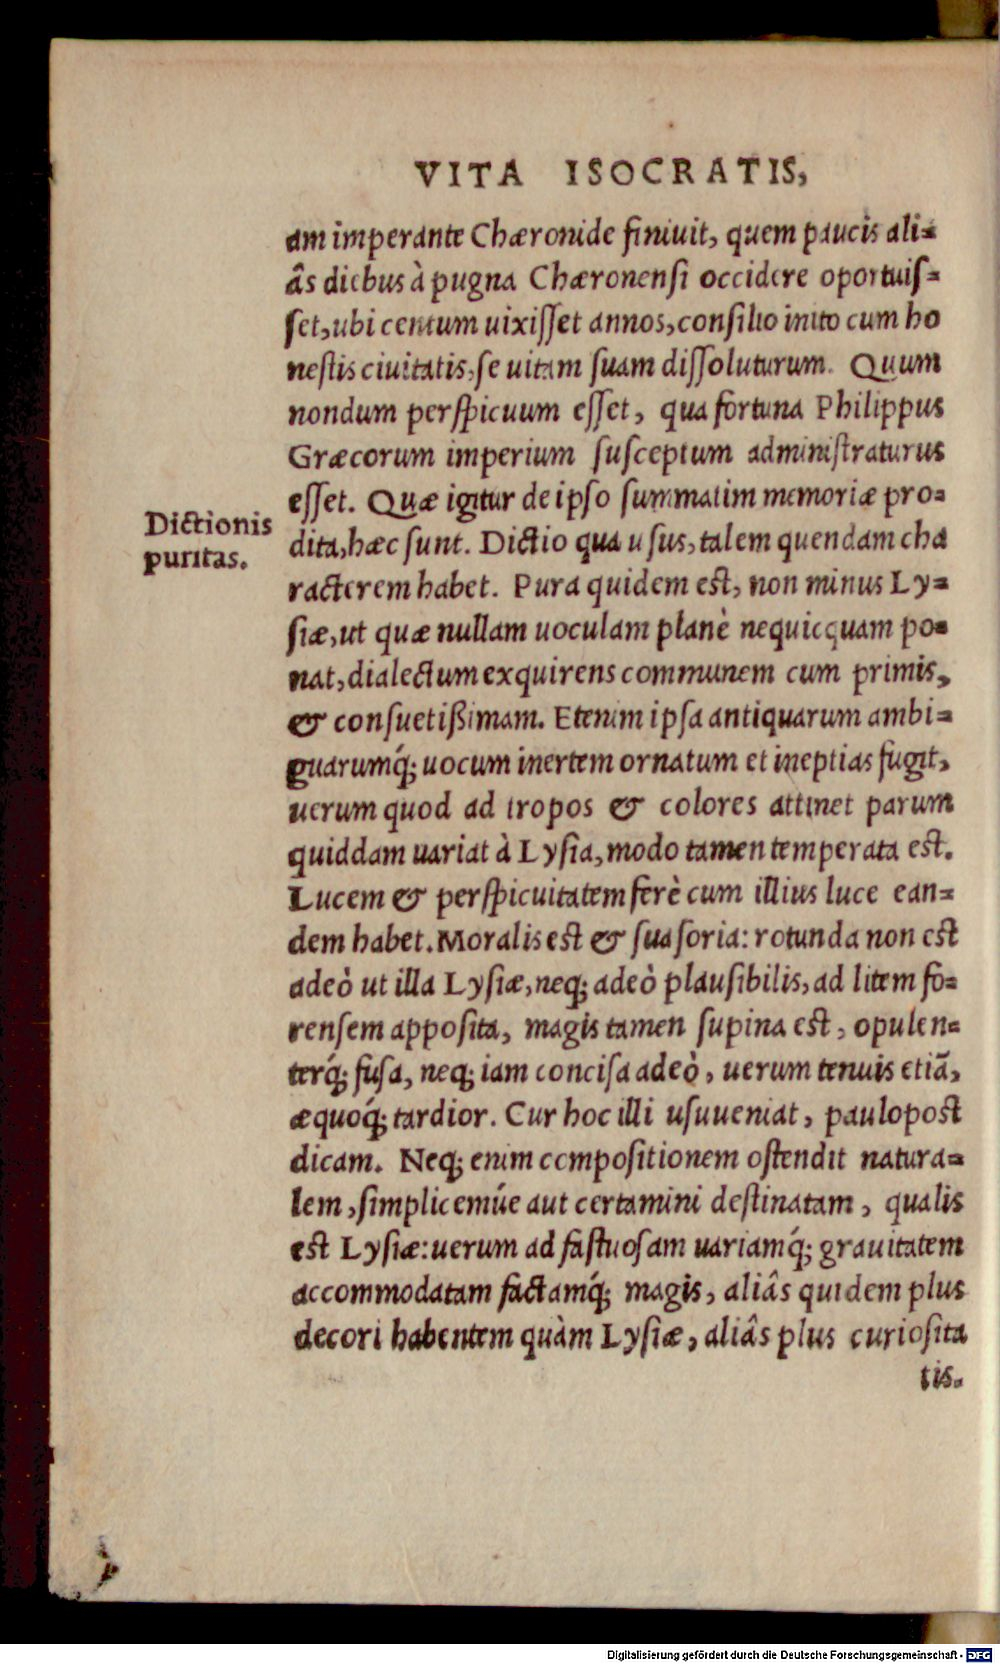 VITA ISOCRATIS,
am imperante Chæronide finiuit, quem paucis ali=
âs diebus à pugna Chæronensi occidere oportuis=
set, ubi centum uixisset annos, consilio inito cum ho
nestis ciuitatis, se uitam suam dissoluturum. Quum
nondum perspicuum esset, qua fortuna Philippus
Græcorum imperium susceptum administraturus
esset. Quæ igitur de ipso summatim memoriæ pro=
Dictionis
puritas.
dita, hæc sunt. Dictio qua usus, talem quendam cha
racterem habet. Pura quidem est, non minus Ly=
siæ, ut quæ nullam uoculam planè nequicquam po=
nat, dialectum exquirens communem cum primis,
& consuetißimam. Etenim ipsa antiquarum ambi=
guarumq́; uocum inertem ornatum et ineptias fugit,
uerum quod ad tropos & colores attinet parum
quiddam uariat à Lysia, modo tamen temperata est.
Lucem & perspicuitatem ferè cum illius luce ean=
dem habet. Moralis est & suasoria: rotunda non est
adeò ut illa Lysiæ, neq; adeò plausibilis, ad litem fo=
rensem apposita, magis tamen supina est, opulen=
terq́; fusa, neq; iam concisa adeò, uerum tenuis etiã,
æquoq́; tardior. Cur hoc illi usuueniat, paulopost
dicam. Neq; enim compositionem ostendit natura=
lem, simplicemúe aut certamini destinatam, qualis
est Lysiæ: uerum ad fastuosam uariamq́; grauitatem
accommodatam factamq́; magis, aliâs quidem plus
decori habentem quàm Lysiæ, aliâs plus curiosita
tis.
Digitalisierung gefördert durch die Deutsche Forschungsgemeinschaft - DFG